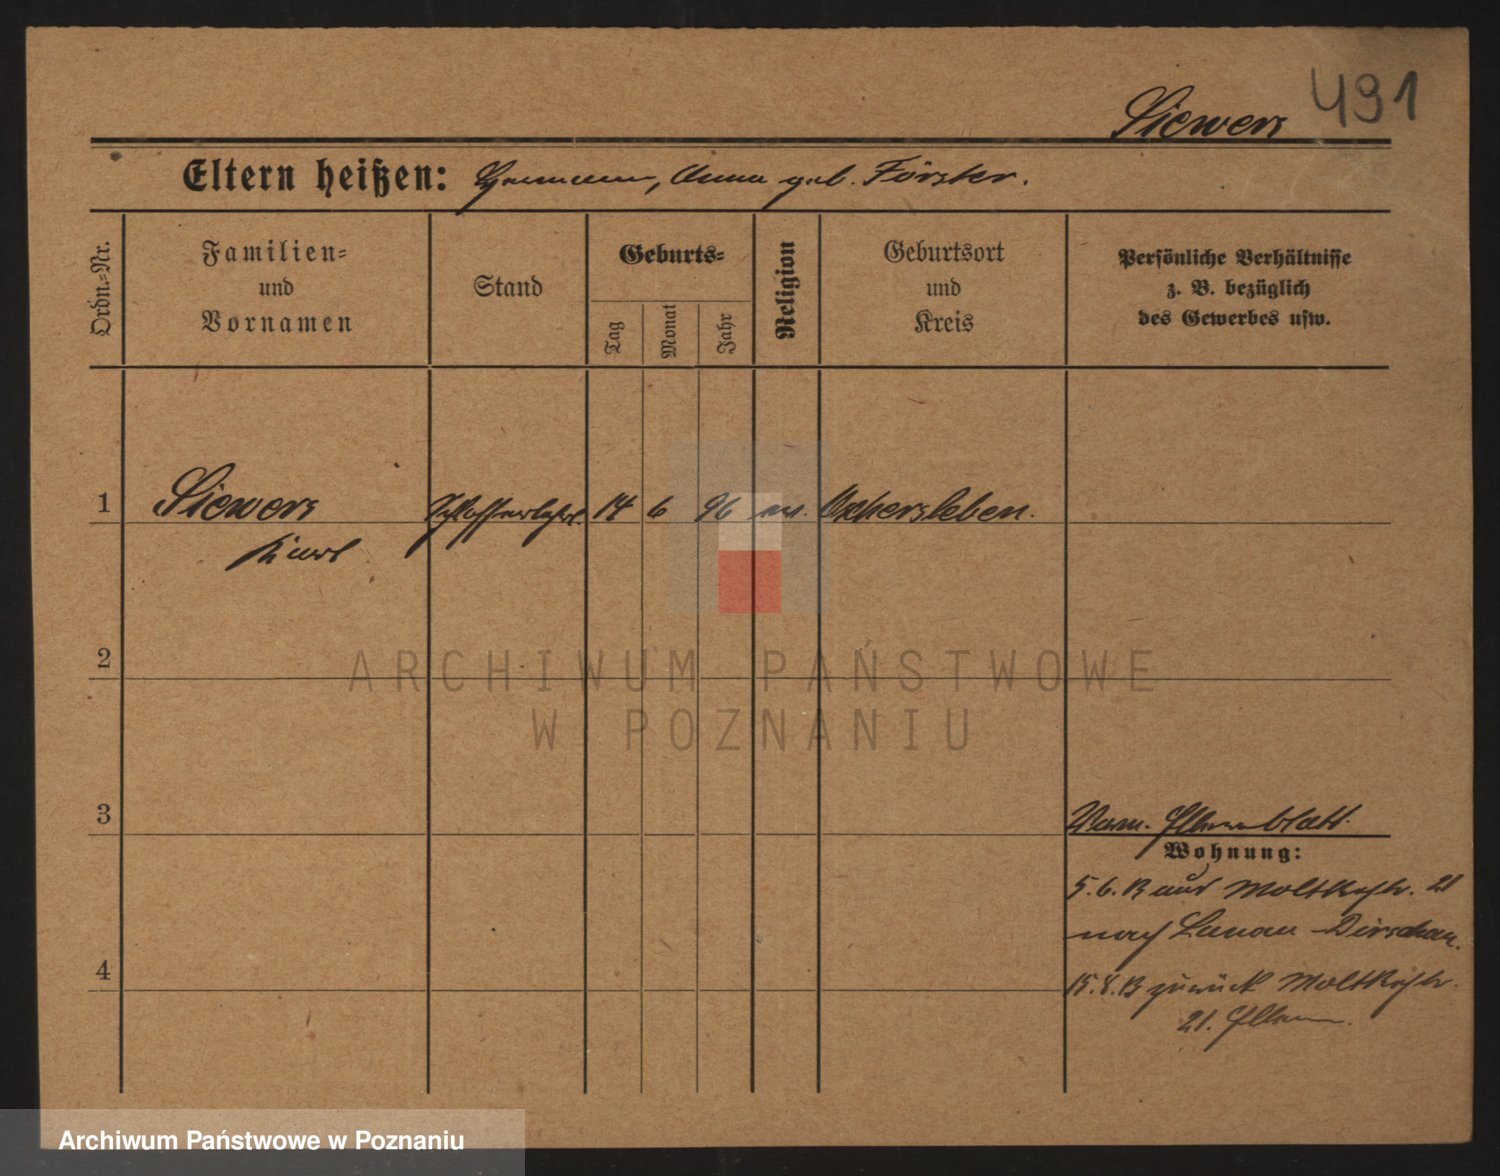 491
Siewers
Eltern heißen: Hermann, Anna geb. Förster.
Ordn.=Nr.
Familien=
und
Vornamen
Stand
Geburts=
Tag
Monat
Jahr
Religion
Geburtsort
und
Kreis
Persönliche Verhältnisse
z. B. bezüglich
des Gewerbes usw.
1 Siewers Schlosserlehrl. 14 6 96 ev. Oschersleben.
Kurt
2
3
Elternblatt.
Wohnung:
5.6.13 aus Moltkestr. 21
nach Lunau-Dirschau.
4
15.8.13 zurück Moltkestr.
21. Eltern.
ARCHIWUM PAŃSTWOWE
W POZNANIU
Archiwum Państwowe w Poznaniu